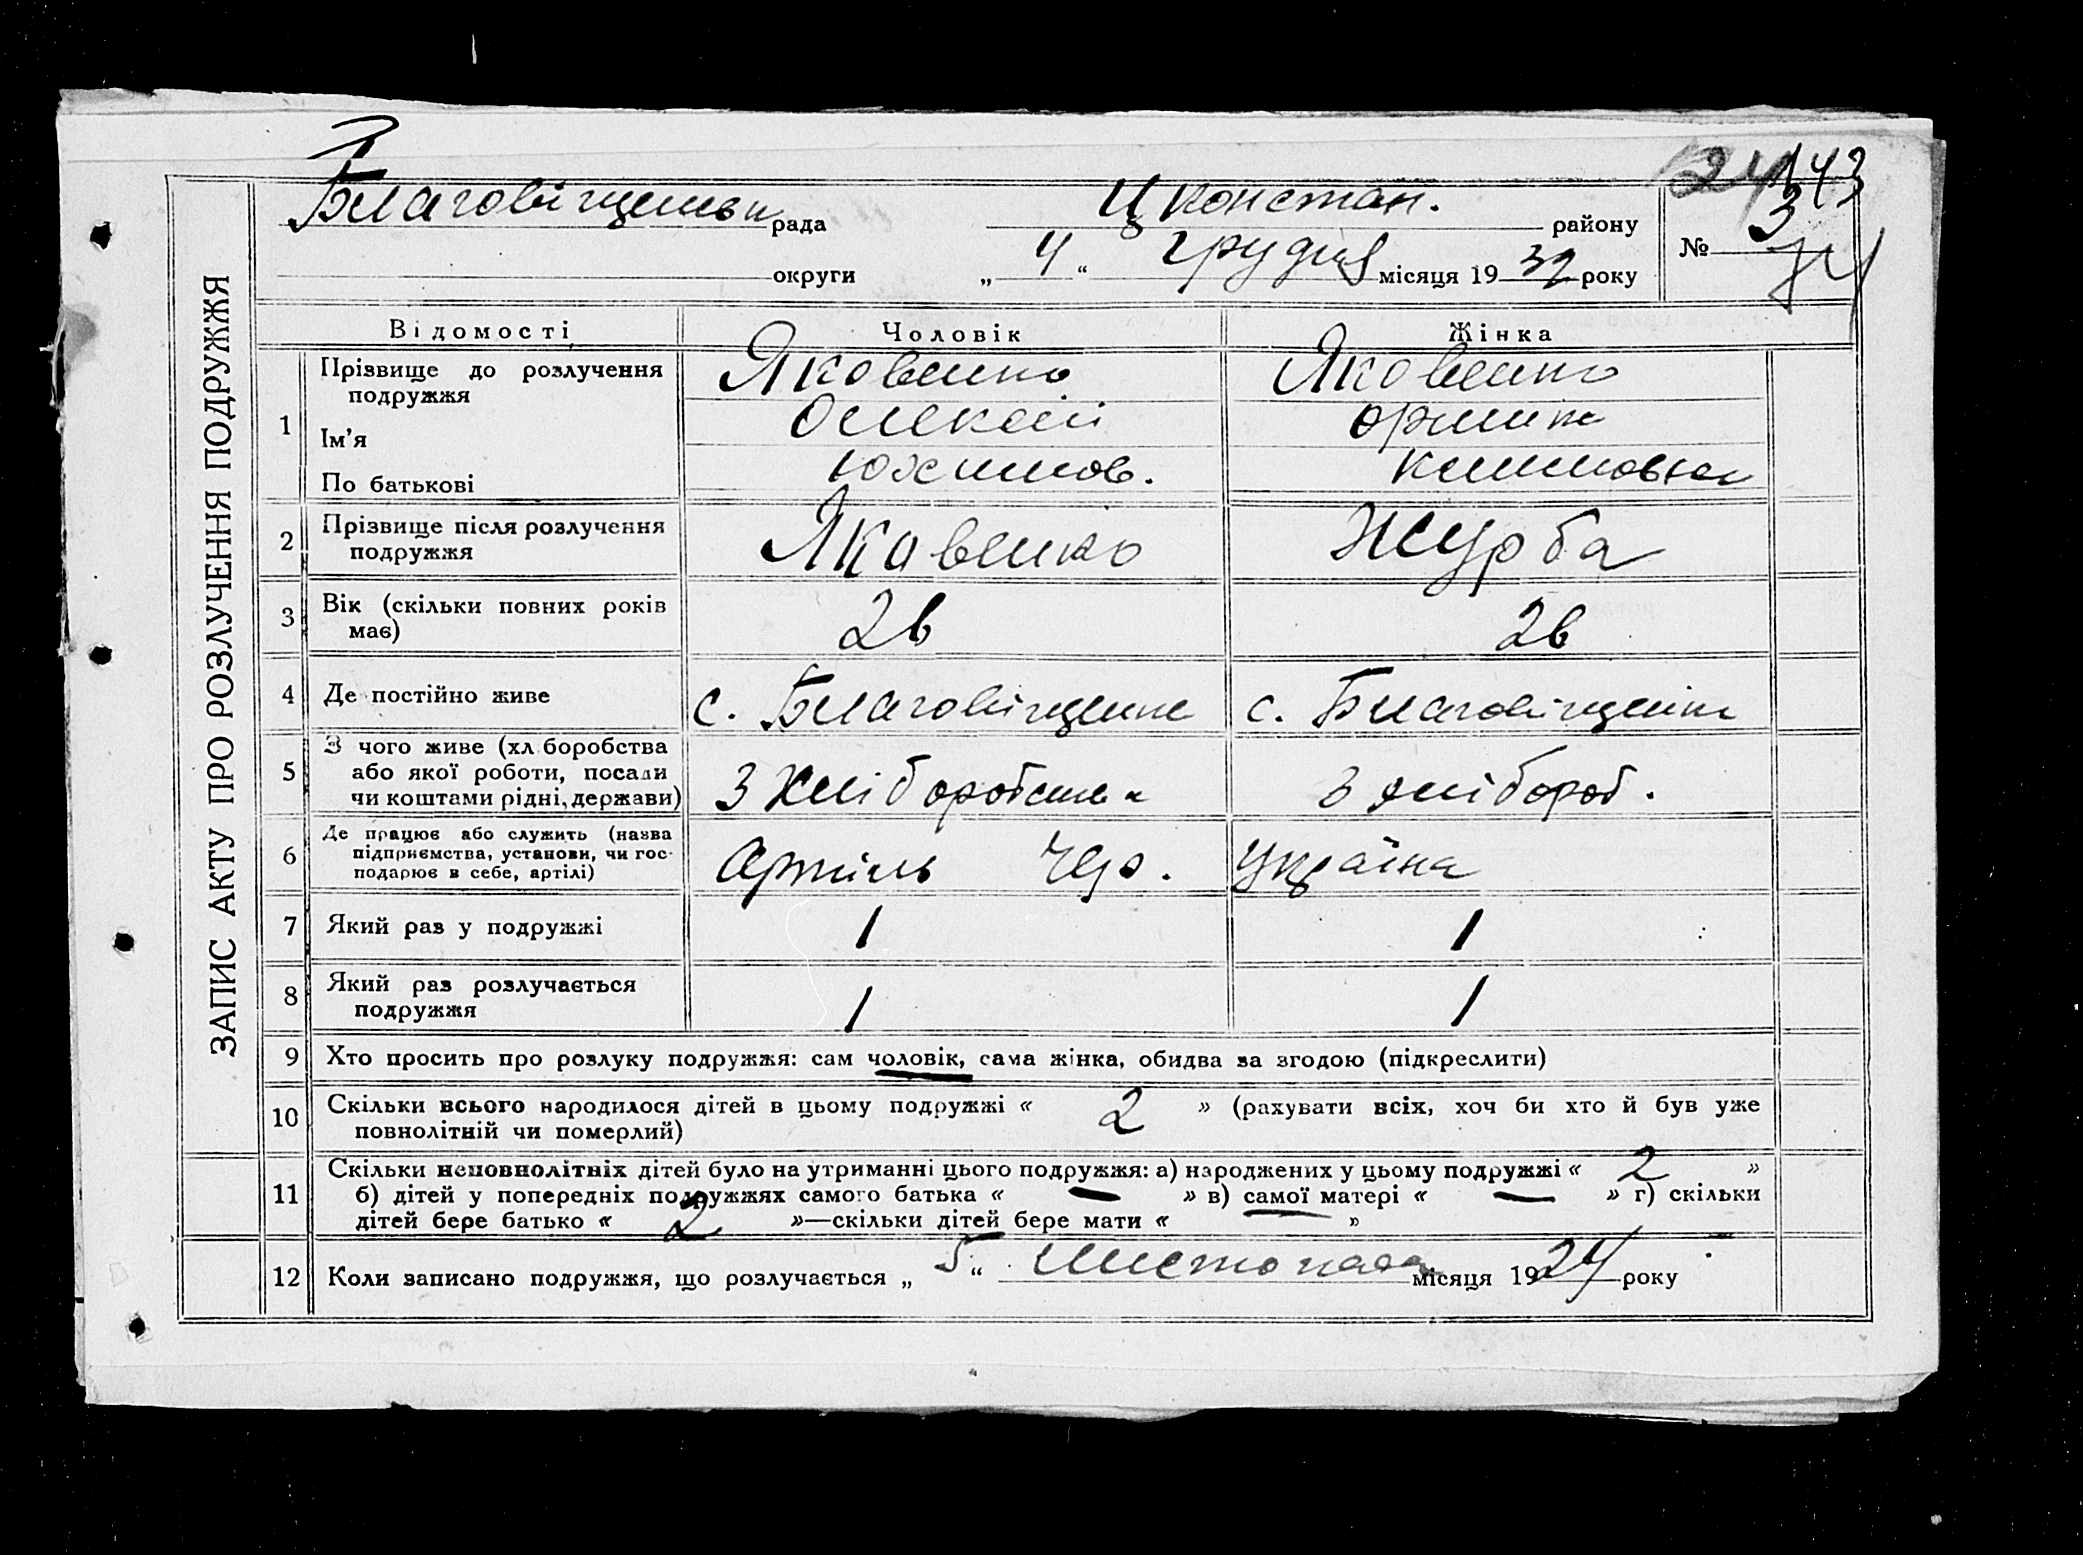 124 143
Благовіщеньк рада Ц Констан. району
№ 3
округи „ 4 “ грудня місяця 1932 року
ЗАПИС АКТУ ПРО РОЗЛУЧЕННЯ ПОДРУЖЖЯ
Відомості Чоловік Жінка
1 Прізвище до розлучення подружжя Яковенко Яковенко
Ім'я Олексій Оришка
По батькові Юхимов. Климовна
2 Прізвище після розлучення подружжя Яковенко Журба
3 Вік (скільки повних років має) 26 26
4 Де постійно живе с. Благовіщенка с. Благовіщенка
5 З чого живе (хліборобства
або якої роботи, посади
чи коштами рідні, держави) З Хліборобства З хлібороб.
6 Де працює або служить (назва
підприємства, установи, чи гос-
подарює в себе, артілі) Артіль Чер. Україна
7 Який раз у подружжі 1 1
8 Який раз розлучається
подружжя 1 1
9 Хто просить про розлуку подружжя: сам чоловік, сама жінка, обидва за згодою (підкреслити)
10 Скільки всього народилося дітей в цьому подружжі « 2 » (рахувати всіх, хоч би хто й був уже
повнолітній чи померлий)
11 Скільки неповнолітніх дітей було на утриманні цього подружжя: а) народжених у цьому подружжі « 2 »
б) дітей у попередніх подружжях самого батька « — » в) самої матері « — » г) скільки
дітей бере батько « 2 »—скільки дітей бере мати « »
12 Коли записано подружжя, що розлучається „ 5 “ листопада місяця 1924 року